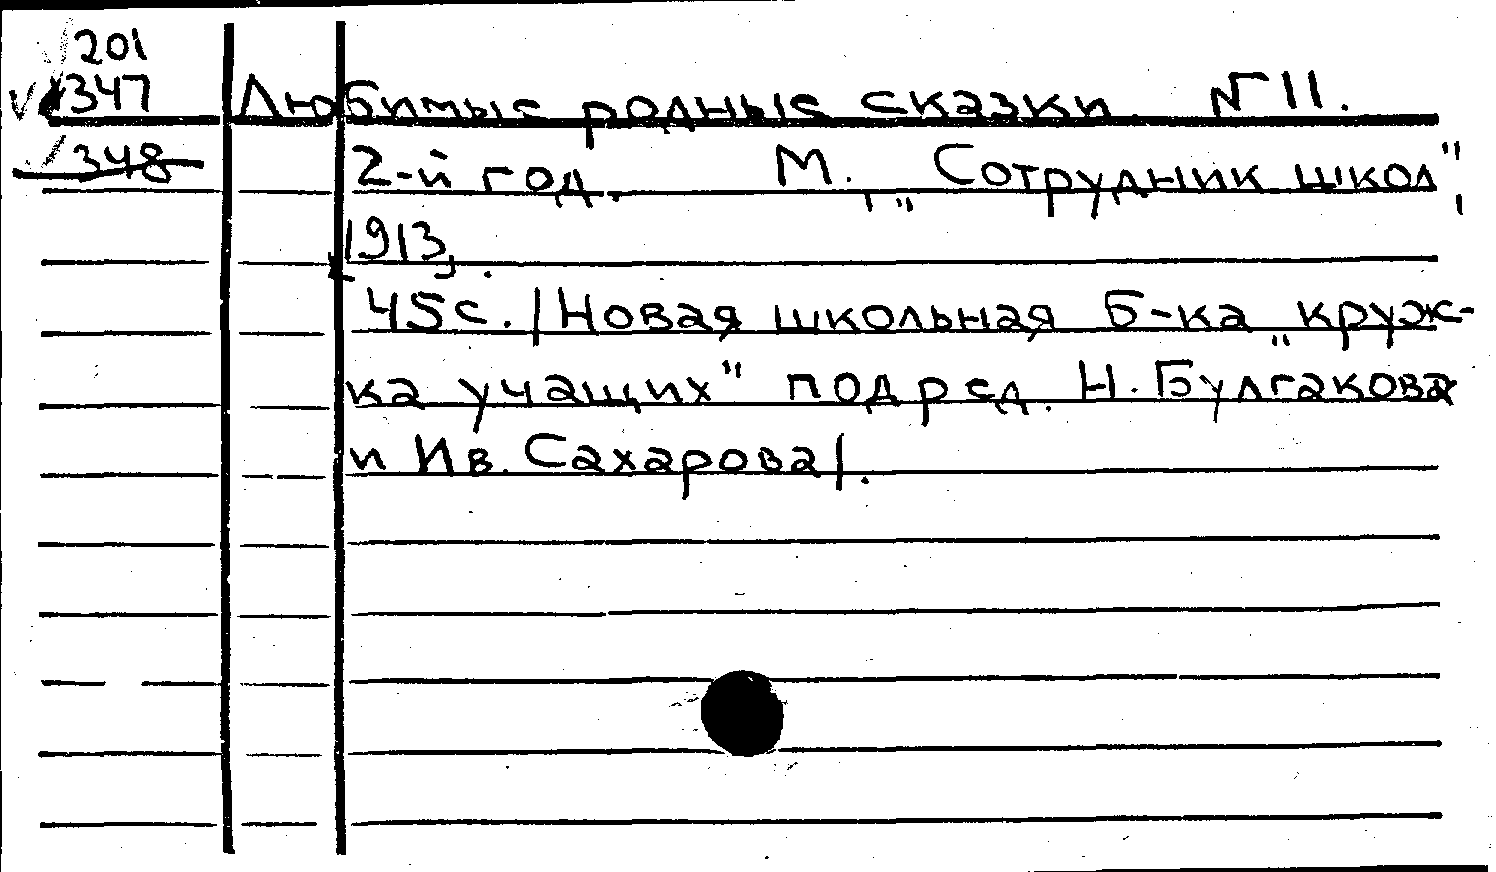 201
347
Любимые родные сказки. №11.
348
2-й год. М., „Сотрудник школ",
[1913].
45 с. /Новая школьная б-ка „круж-
ка учащих" под ред. Н. Булгакова
и Ив. Сахарова/.